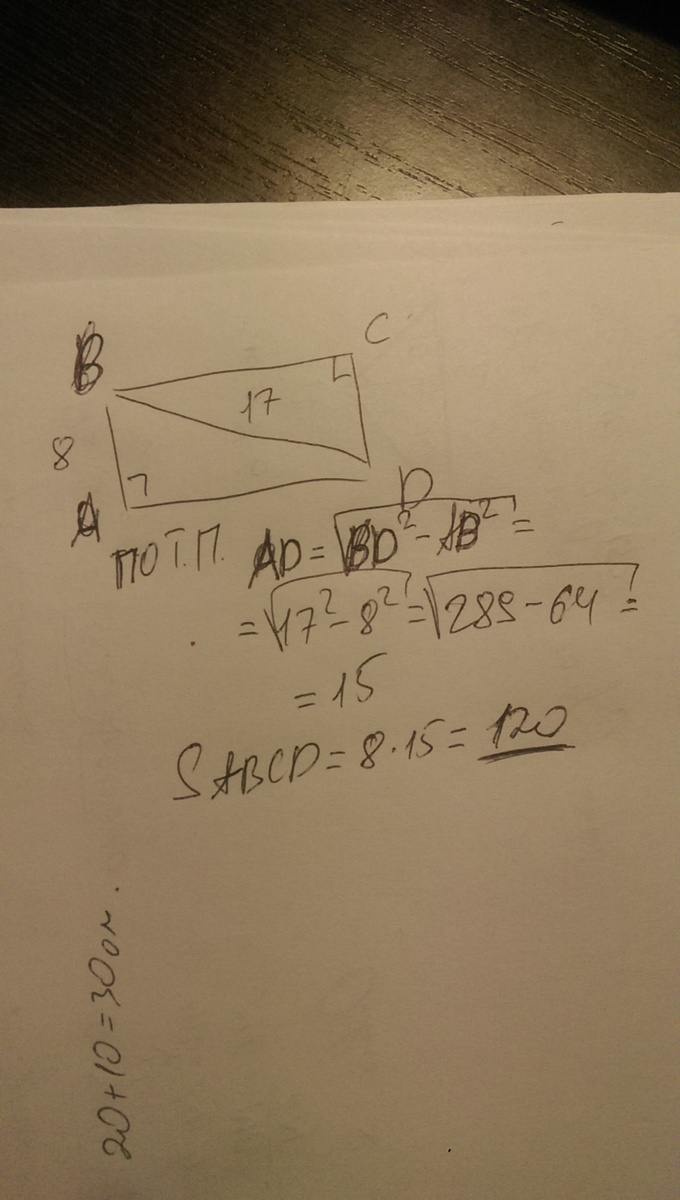 B
C
17
8
A
D
ПО Т.П. AD = √BD² - AB² =
= √17² - 8² = √289 - 64 =
= 15
S ABCD = 8 · 15 = 120
20 + 10 = 30 ом.